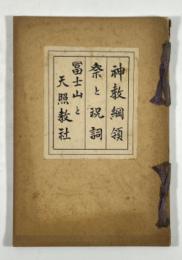 神教綱領
祭と祝詞
冨士山と
天照教社